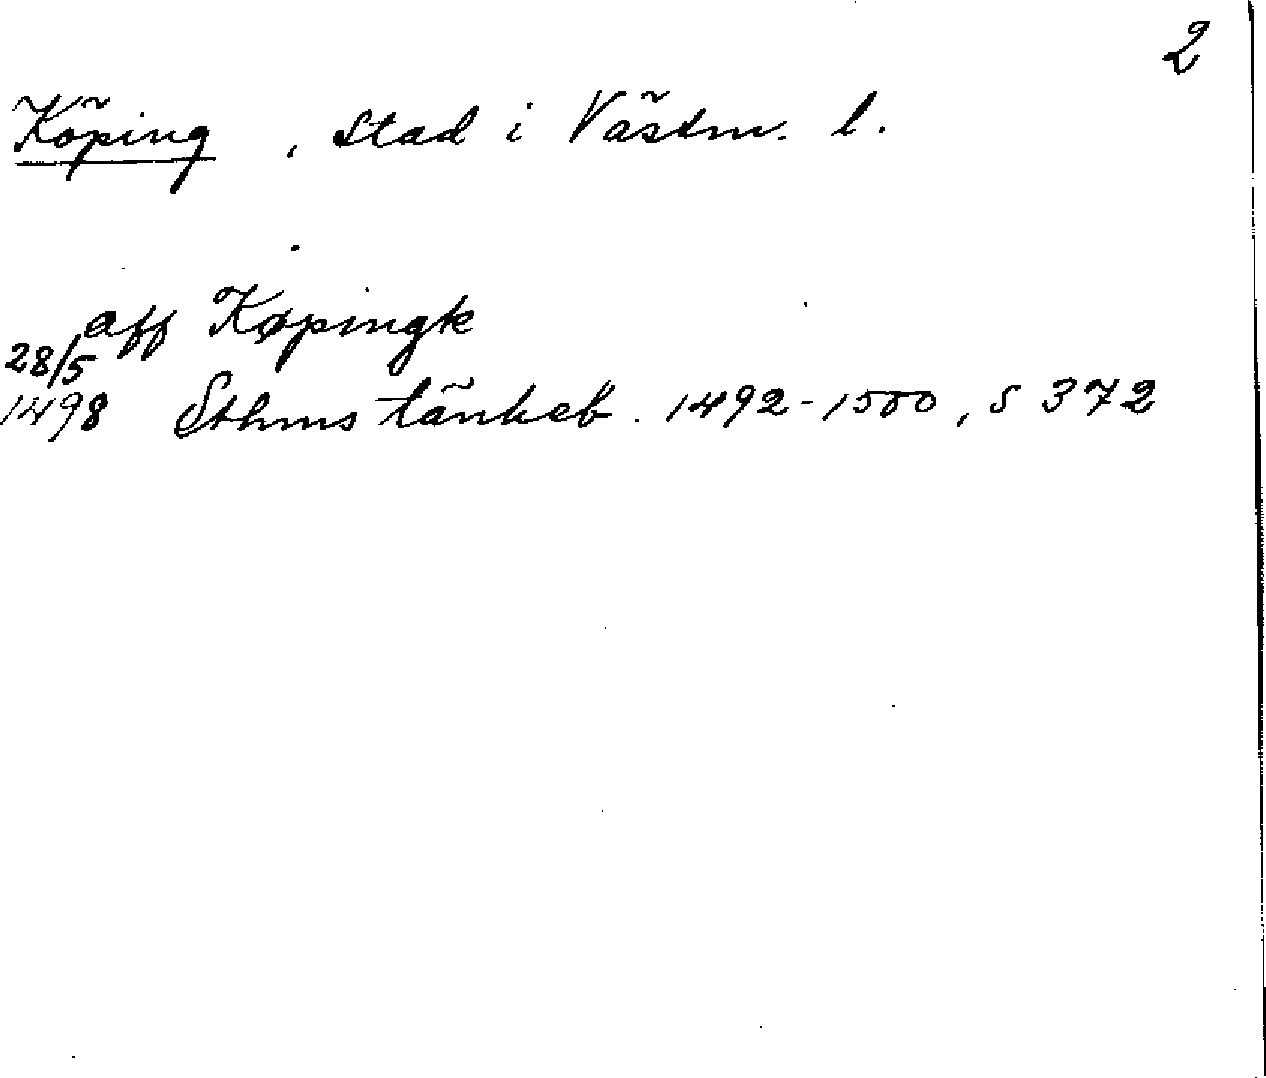 2
Köping, Stad i Västm. l.
aff Køpingk
28/5
1498 Sthms tänkeb. 1492-1500, s 372